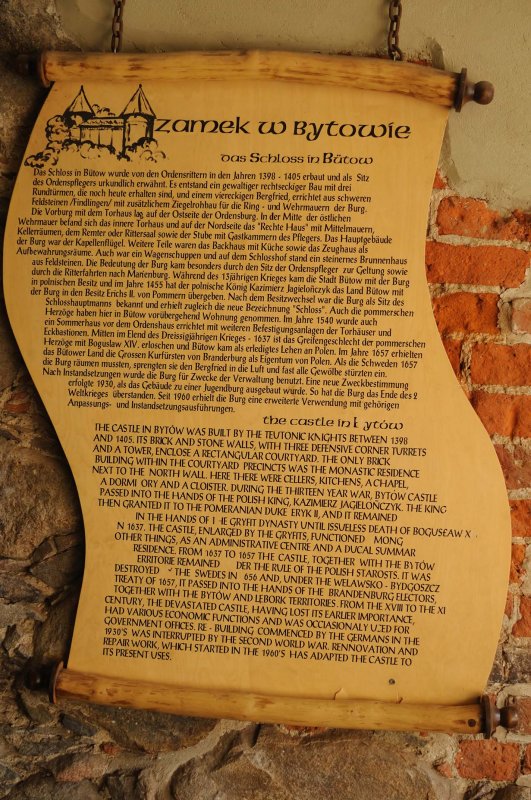 Zamek w Bytowie
das Schloss in Bütow
Das Schloss in Bütow wurde von den Ordensrittern in den Jahren 1398 - 1405 erbaut und als Sitz
des Ordenspflegers urkundlich erwähnt. Es entstand ein gewaltiger rechtseckiger Bau mit drei
Rundtürmen, die noch heute erhalten sind, und einem viereckigen Bergfried, errichtet aus schweren
Feldsteinen /Findlingen/ mit zusätzlichem Ziegelrohbau für die Ring - und Wehrmauern der Burg.
Die Vorburg mit dem Torhaus lag, auf der Ostseite der Ordensburg. In der Mitte der östlichen
Wehrmauer befand sich das innere Torhaus und auf der Nordseite das "Rechte Haus" mit Mittelmauern,
Kellerräumen, dem Remter oder Rittersaal sowie der Stube mit Gastkammern des Pflegers. Das Hauptgebäude
der Burg war der Kapellenflügel. Weitere Teile waren das Backhaus mit Küche sowie das Zeughaus als
Aufbewahrungsräume. Auch war ein Wagenschuppen und auf dem Schlosshof stand ein steinernes Brunnenhaus
aus Feldsteinen. Die Bedeutung der Burg kam besonders durch den Sitz der Ordenspfleger zur Geltung sowie
durch die Ritterfahrten nach Marienburg. Während des 13jährigen Krieges kam die Stadt Bütow mit der Burg
in polnischen Besitz und im Jahre 1455 hat der polnische König Kazimierz Jagielończyk das Land Bütow mit
der Burg in den Besitz Erichs II. von Pommern übergeben. Nach dem Besitzwechsel war die Burg als Sitz des
Schlosshauptmanns bekannt und erhielt zugleich die neue Bezeichnung "Schloss". Auch die pommerschen
Herzöge haben hier in Bütow vorübergehend Wohnung genommen. Im Jahre 1540 wurde auch
ein Sommerhaus vor dem Ordenshaus errichtet mit weiteren Befestigungsanlagen der Torhäuser und
Eckbastionen. Mitten im Elend des Dreissigjährigen Krieges - 1637 ist das Greifengeschlecht der pommerschen
Herzöge mit Boguslaw XIV. erloschen und Bütow kam als erledigtes Lehen an Polen. Im Jahre 1657 erhielten
das Bütower Land die Grossen Kurfürsten von Branderburg als Eigentum von Polen. Als die Schweden 1657
die Burg räumen mussten, sprengten sie den Bergfried in die Luft und fast alle Gewölbe stürzten ein.
Nach Instandsetzungen wurde die Burg für Zwecke der Verwaltung benutzt. Eine neue Zweckbestimmung
erfolgte 1930, als das Gebäude zu einer Jugendburg ausgebaut würde. So hat die Burg das Ende des 2
Weltkrieges überstanden. Seit 1960 erhielt die Burg eine erweiterte Verwendung mit gehörigen
Anpassungs- und Instandsetzungsausführungen.
the castle in ytów
THE CASTLE IN BYTÓW WAS BUILT BY THE TEUTONIC KNIGHTS BETWEEN 1398
AND 1405. ITS BRICK AND STONE WALLS, WITH THREE DEFENSIVE CORNER TURRETS
AND A TOWER, ENCLOSE A RECTANGULAR COURTYARD. THE ONLY BRICK
BUILDING WITHIN THE COURTYARD PRECINCTS WAS THE MONASTIC RESIDENCE
NEXT TO THE NORTH WALL. HERE THERE WERE CELLERS, KITCHENS, A CHAPEL,
A DORMI ORY AND A CLOISTER. DURING THE THIRTEEN YEAR WAR, BYTÓW CASTLE
PASSED INTO THE HANDS OF THE POLISH KING, KAZIMIERZ JAGIELOŃCZYK. THE KING
THEN GRANTED IT TO THE POMERANIAN DUKE ERYK II, AND IT REMAINED
IN THE HANDS OF HE GRYFIT DYNASTY UNTIL ISSUELESS DEATH OF BOGUSŁAW X
N 1637. THE CASTLE, ENLARGED BY THE GRYFITS, FUNCTIONED MONG
OTHER THINGS, AS AN ADMINISTRATIVE CENTRE AND A DUCAL SUMMAR
RESIDENCE. FROM 1637 TO 1657 THE CASTLE, TOGETHER WITH THE BYTÓW
ERRITORIE REMAINED DER THE RULE OF THE POLISH STAROSTS. IT WAS
DESTROYED Y THE SWEDES IN 656 AND, UNDER THE WELAWSKO - BYDGOSZCZ
TREATY OF 1657, IT PASSED INTO THE HANDS OF THE BRANDENBURG ELECTORS,
TOGETHER WITH THE BYTÓW AND LEBORK TERRITORIES. FROM THE XVIII TO THE XI
CENTURY, THE DEVASTATED CASTLE, HAVING LOST ITS EARLIER IMPORTANCE,
HAD VARIOUS ECONOMIC FUNCTIONS AND WAS OCCIASIONALY USED FOR
GOVERNMENT OFFICES. RE - BUILDING COMMENCED BY THE GERMANS IN THE
1930'S WAS INTERRUPTED BY THE SECOND WORLD WAR. RENNOVATION AND
REPAIR WORK, WHICH STARTED IN THE 1960'S HAS ADAPTED THE CASTLE TO
ITS PRESENT USES.